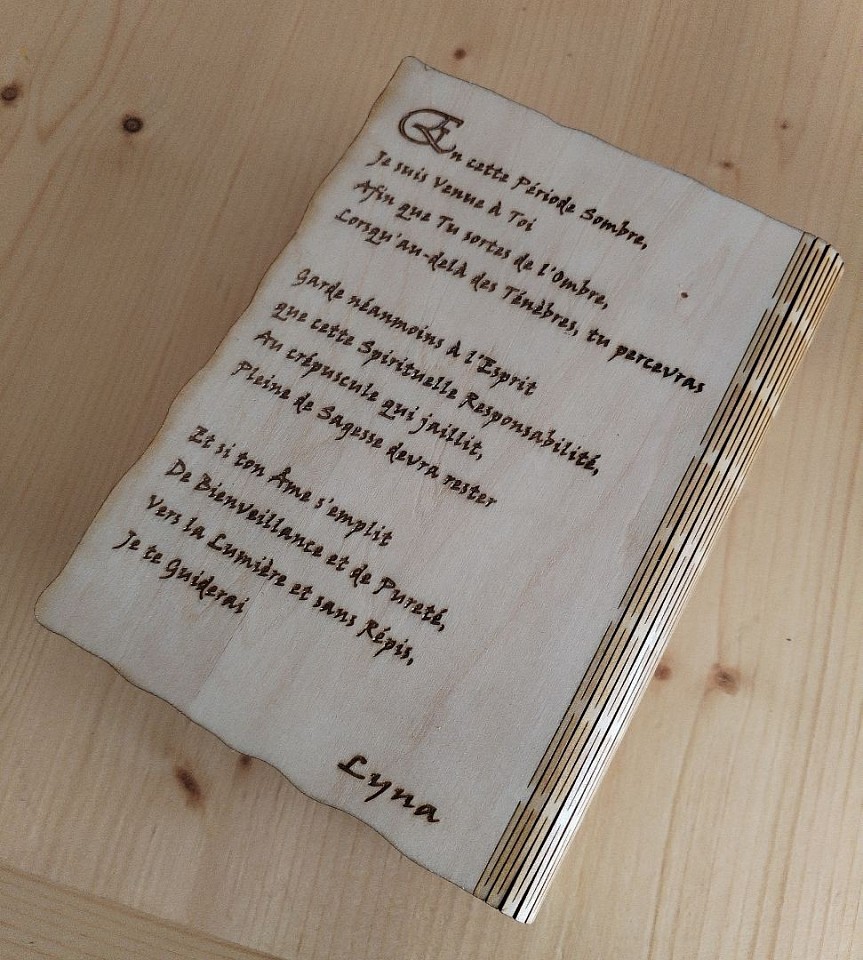 En cette Période Sombre,
Je suis Venue à Toi
Afin que Tu sortes de l'Ombre,
Lorsqu'au-delà des Ténèbres, tu percevras
Garde néanmoins à l'Esprit
que cette Spirituelle Responsabilité,
Au crépuscule qui jaillit,
Pleine de Sagesse devra rester
Et si ton Âme s'emplit
De Bienveillance et de Pureté,
Vers la Lumière et sans Répis,
Je te Guiderai
Lyna